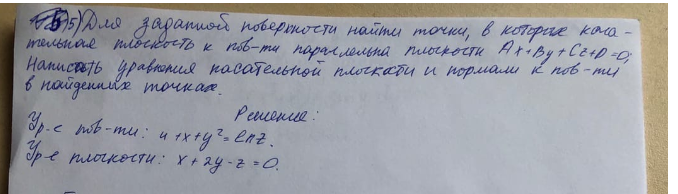 5) Для заданной поверхности найти точки, в которых каса-
тельная плоскость к пов-ти параллельна плоскости Ax+By+Cz+D=0;
Написать уравнения касательной плоскости и нормали к пов-ти
в найденных точках.
Решение:
Ур-е пов-ти: 4+x+y²=lnz.
Ур-е плоскости: x+2y-z=0.